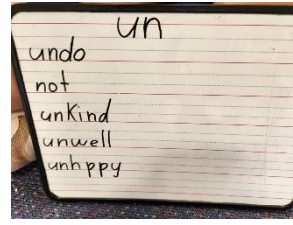 un
undo
not
unkind
unwell
unhppy